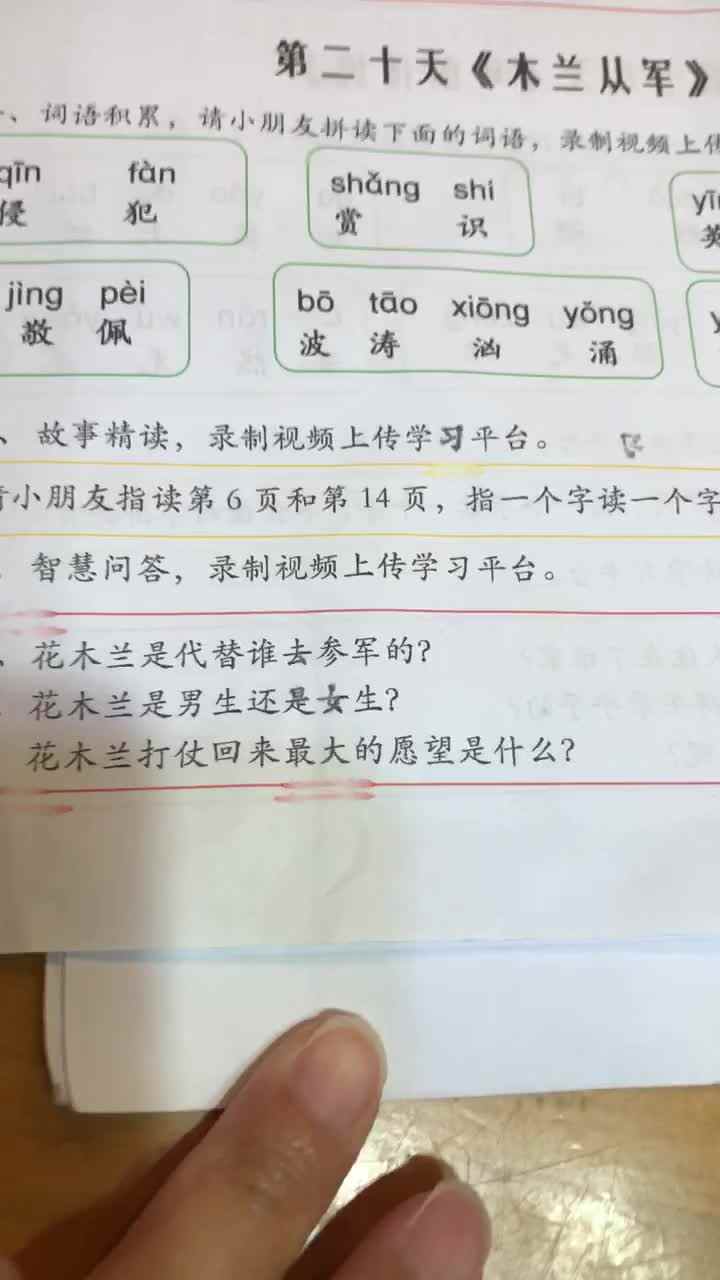 第二十天《木兰从军》
、词语积累，请小朋友拼读下面的词语，录制视频上传
qīn fàn shǎng shi yī
侵 犯 赏 识 英
jìng pèi bō tāo xiōng yǒng
敬 佩 波 涛 汹 涌
、故事精读，录制视频上传学习平台。 习
请小朋友指读第6页和第14页，指一个字读一个字
智慧问答，录制视频上传学习平台。
、花木兰是代替谁去参军的?
花木兰是男生还是女生?
花木兰打仗回来最大的愿望是什么?